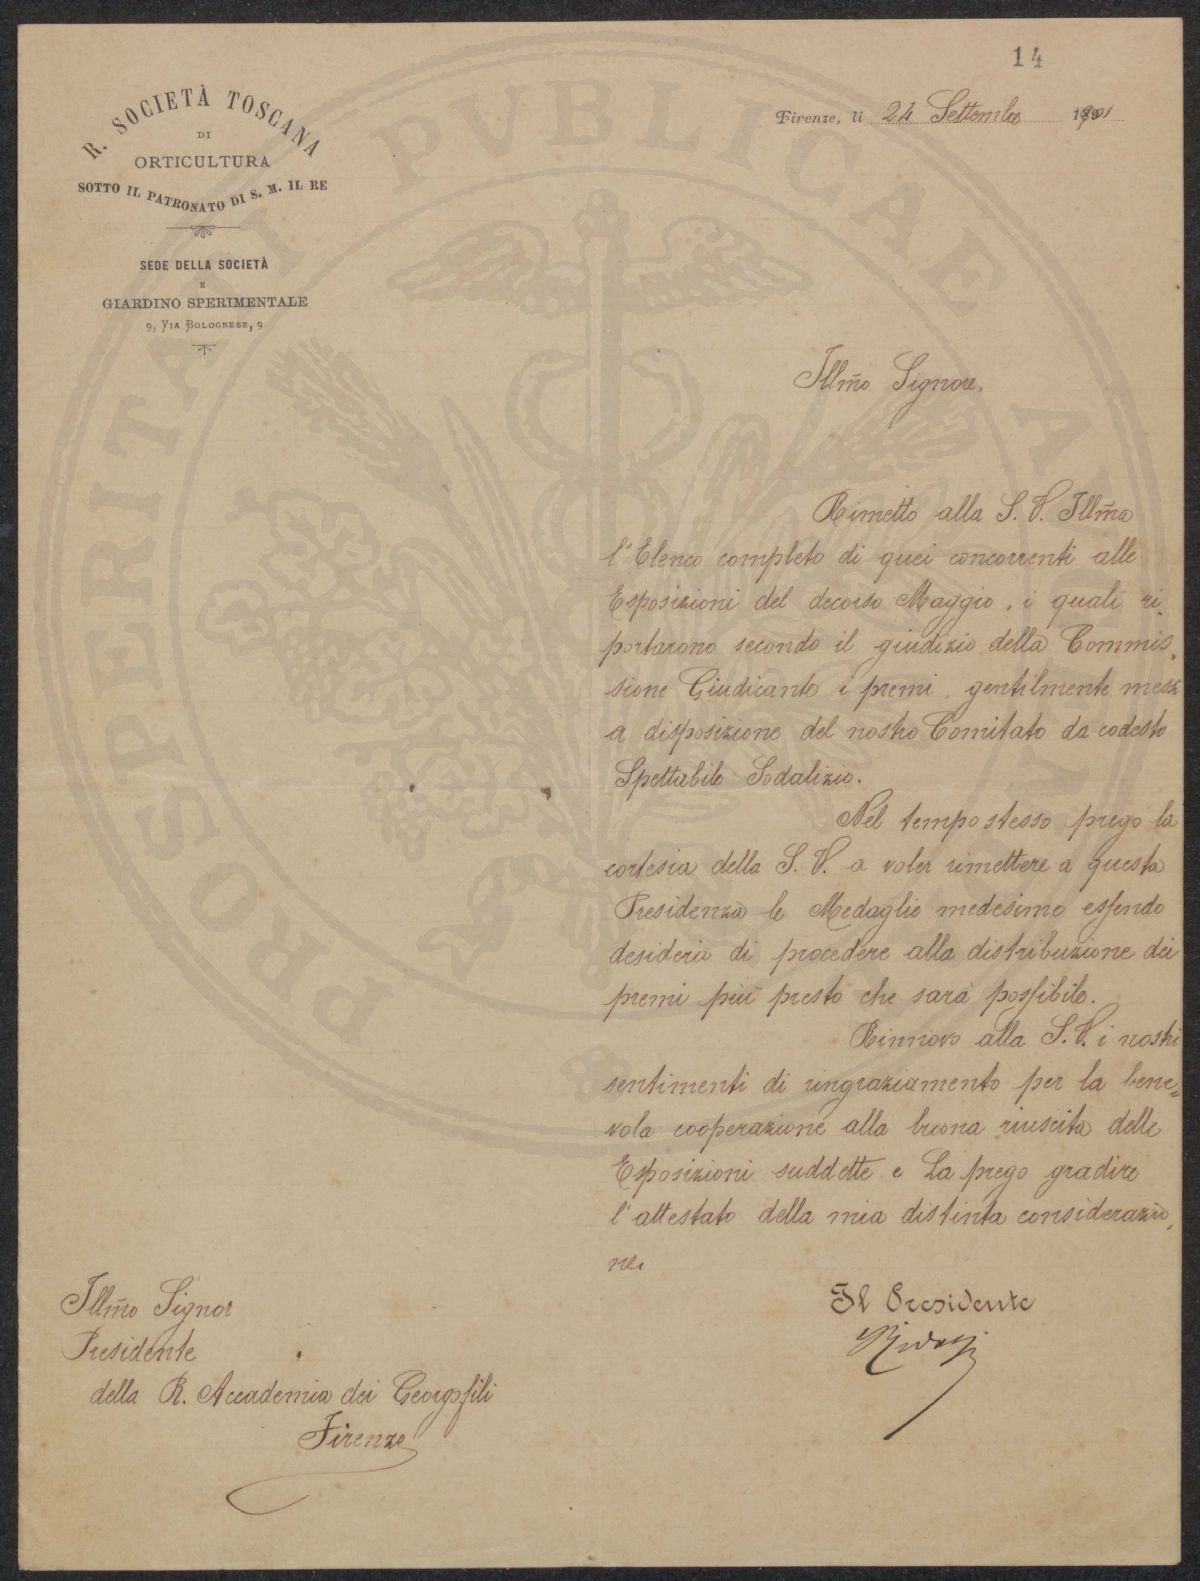 14
R. SOCIETÀ TOSCANA
DI
ORTICULTURA
SOTTO IL PATRONATO DI S. M. IL RE
SEDE DELLA SOCIETÀ
E
GIARDINO SPERIMENTALE
9, VIA BOLOGNESE, 9
Firenze, li 24 Settembre
Illm̃o Signore.
Rimetto alla S. V. Illm̃a
l'Elenco completo di quei concorrenti alle
Esposizioni del decorso Maggio, i quali ri-
portarono secondo il giudizio della Commis-
sione Giudicante i premi, gentilmente messi
a disposizione del nostro Comitato da codesto
Spettabile Sodalizio.
Nel tempo stesso prego la
cortesia della S. V. a voler rimettere a questa
Presidenza le Medaglie medesime essendo
desiderio di procedere alla distribuzione dei
premi più presto che sarà possibile.
Rinnovo alla S. V. i nostri
sentimenti di ringraziamento per la bene=
vola cooperazione alla buona riuscita delle
Esposizioni suddette e La prego gradire
l'attestato della mia distinta considerazio-
ne.
Il Presidente
Ridolfi
Illm̃o Signor
Presidente
della R. Accademia dei Georgofili
Firenze
PROSPERITATI PUBLICAE